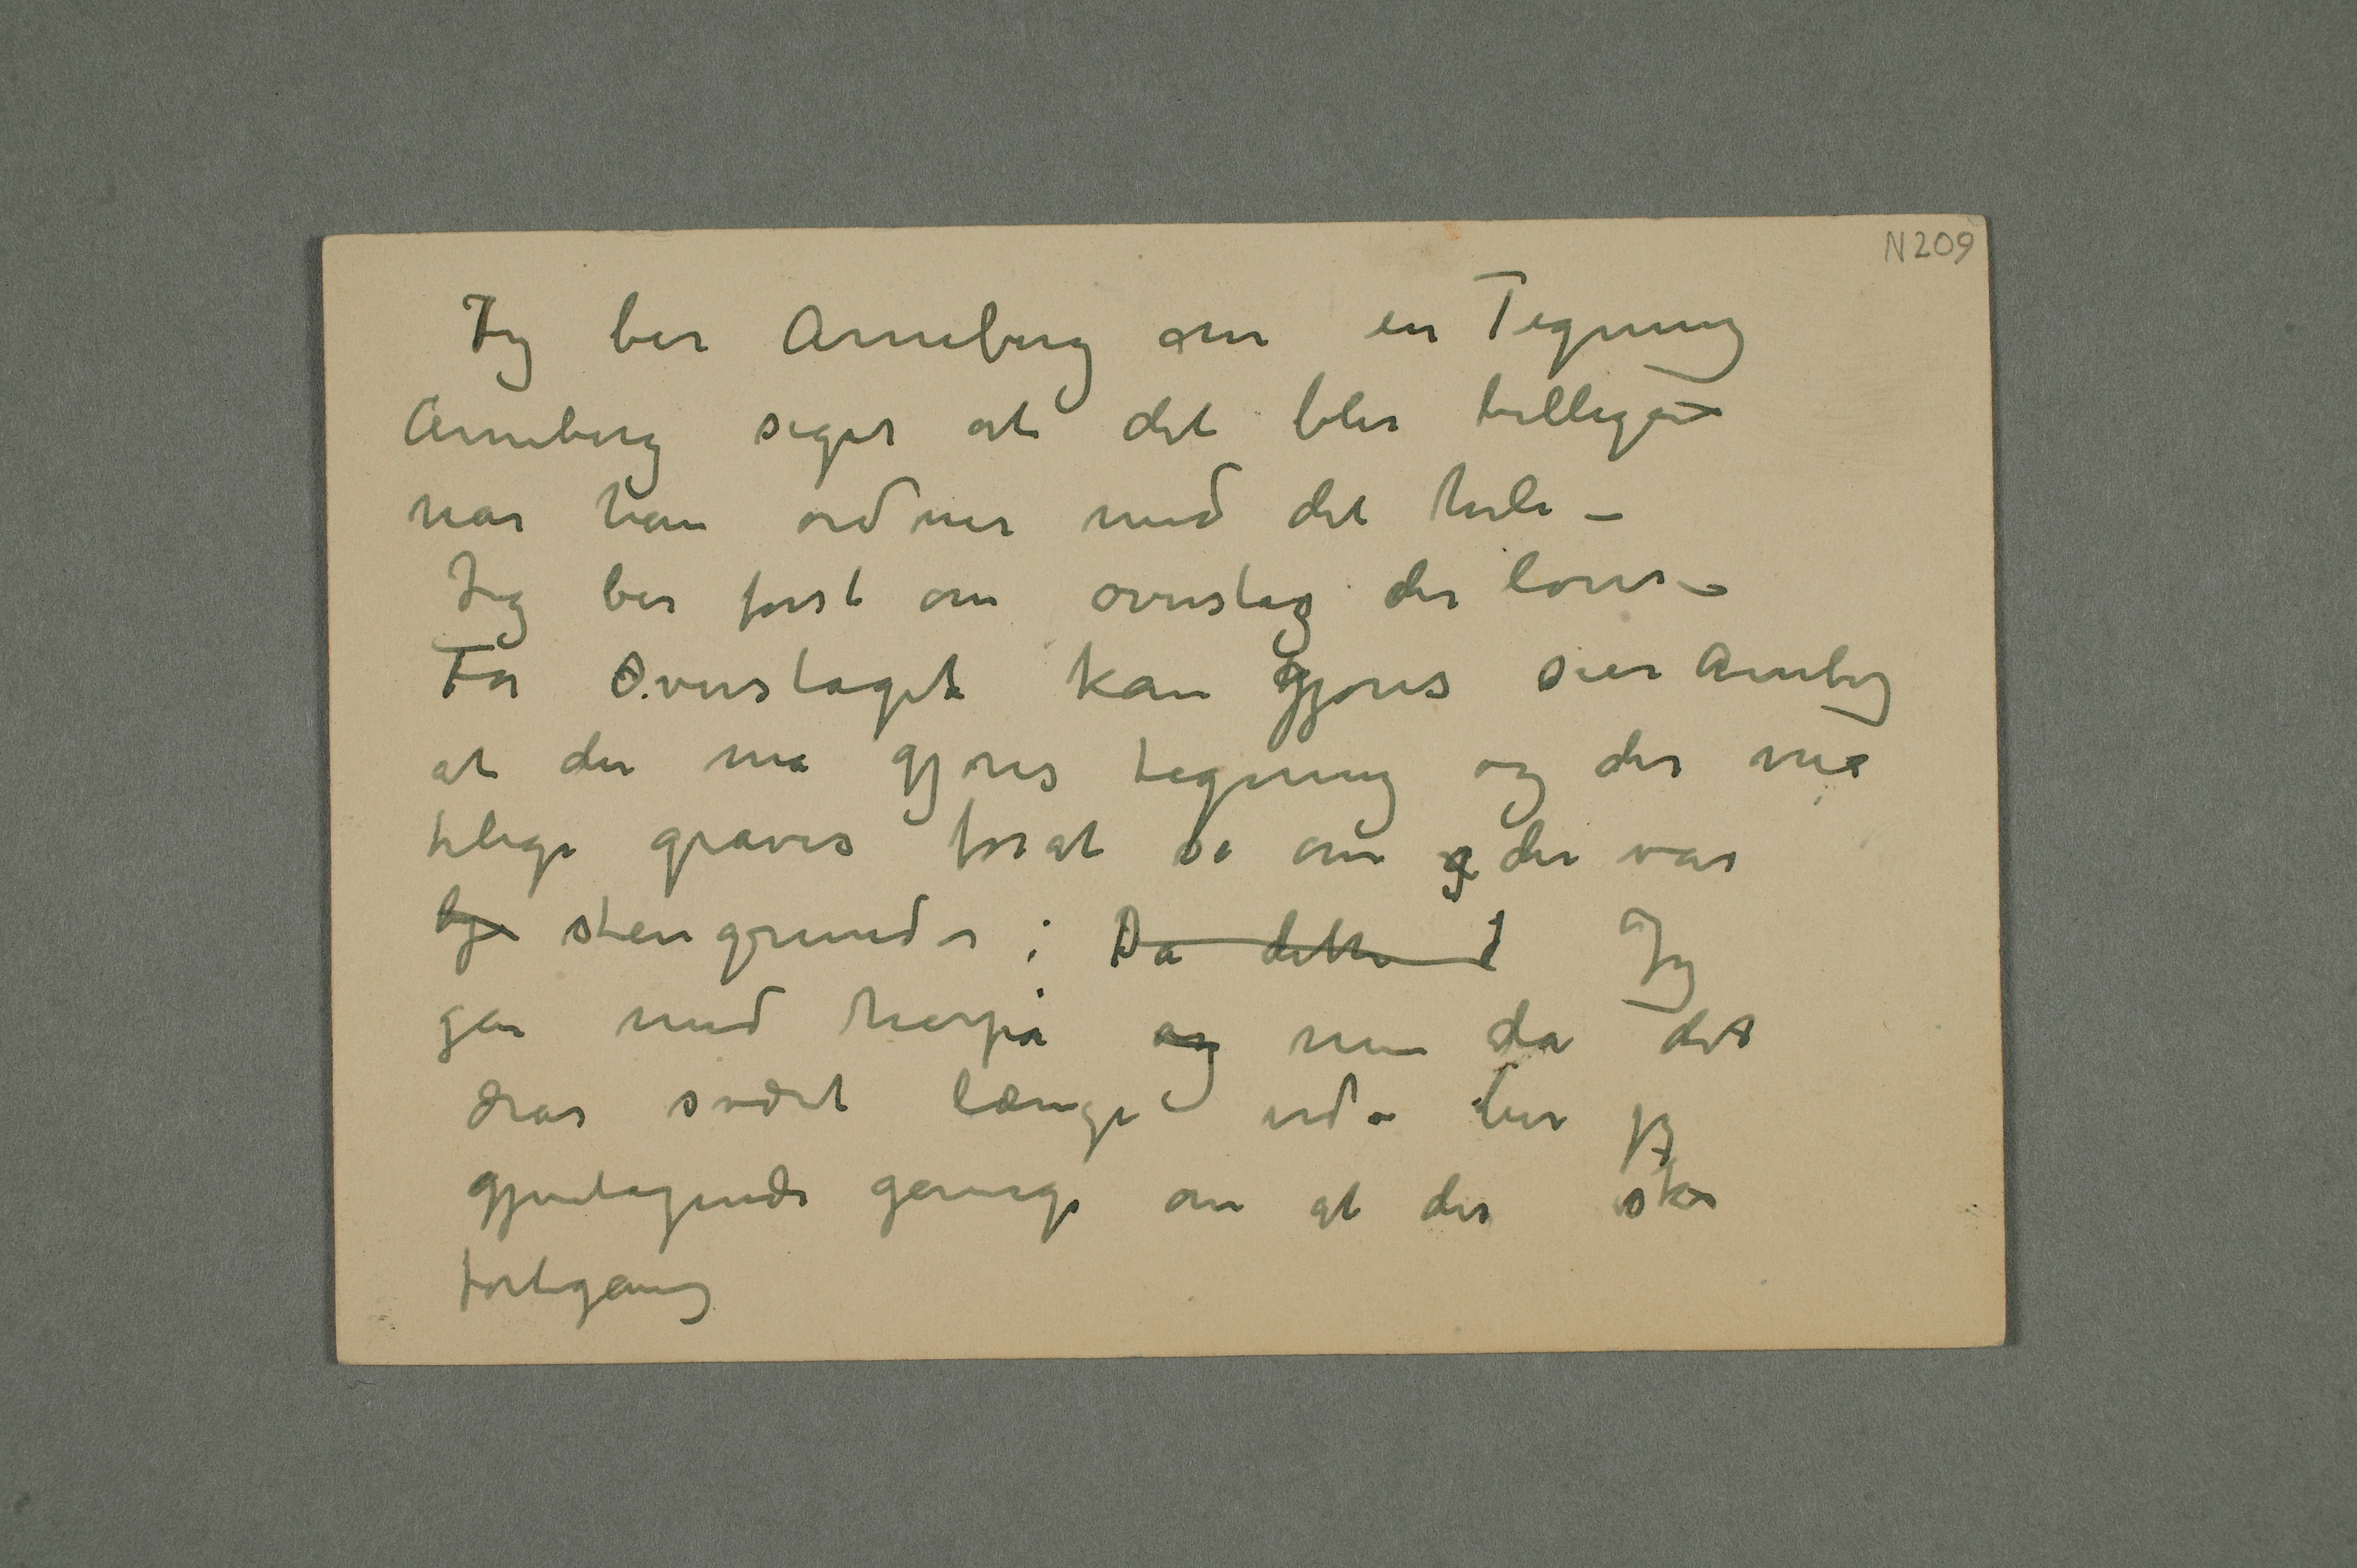 N 209
Jeg ber Arneberg om en Tegning
Arneberg siger at det blir billigere
når han ordner med det hele –
Jeg ber først om overslag der loves –
Før Overslaget kan gjøres sier Arneberg
at der må gjøres tegning og der må
tillige graves forat se om der var
stengrund; Da dette Jeg
går med herpå og men da det
drar svært længe ud ber jeg
gjentagende gange om at der sker
fortgang